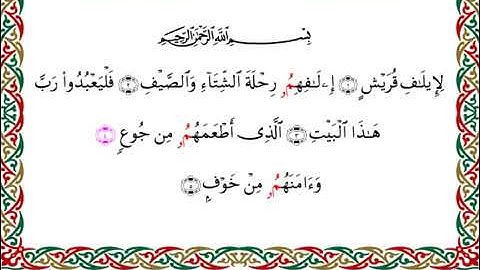 بِسْمِ اللَّهِ الرَّحْمَٰنِ الرَّحِيمِ
لِإِيلَٰفِ قُرَيْشٍ ۝١ إِۦلَٰفِهِمُۥ رِحْلَةَ الشِّتَآءِ وَالصَّيْفِ ۝٢ فَلْيَعْبُدُواْ رَبَّ
هَٰذَا الْبَيْتِ ۝٣ الَّذِىٓ أَطْعَمَهُمُۥ مِن جُوعٍ ۝٤
وَءَامَنَهُمُۥ مِنْ خَوْفٍۭ ۝٥